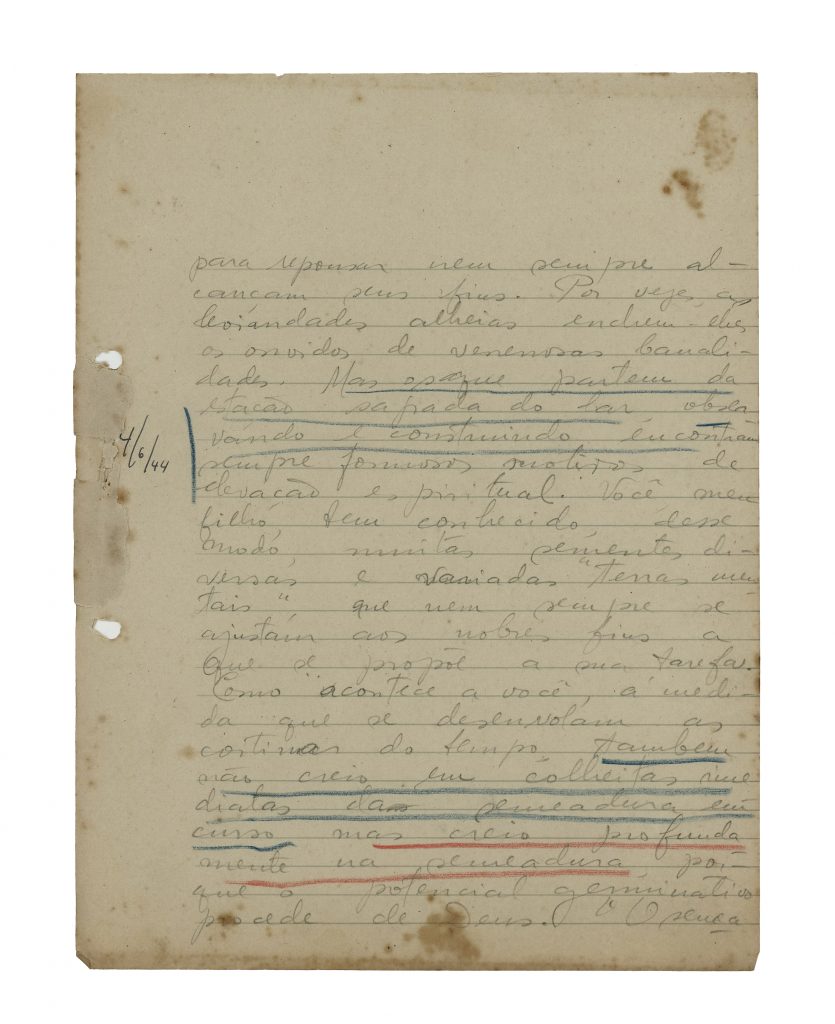 para repousar nem sempre al-
cançam seus fins. Por vezes, as
leviandades alheias enchem-lhes
os ouvidos de venenosas banali-
dades. Mas os que partem da
estação sagrada do lar obser
vando e construindo encontram
4/6/44
sempre formosos motivos de
elevação espiritual. Você meu
filho, tem conhecido, desse
modo, muitas sementes di-
versas e variadas "terras men
tais", que nem sempre se
ajustam aos nobres fins a
que se propõe a sua tarefa.
Como acontece a você, á medi-
da que se desenrolam as
cortinas do tempo, tambem
não creio em colheitas ime
diatas da semeadura em
curso mas creio profunda
mente na semeadura por-
que o potencial germinativo
procede de Deus.